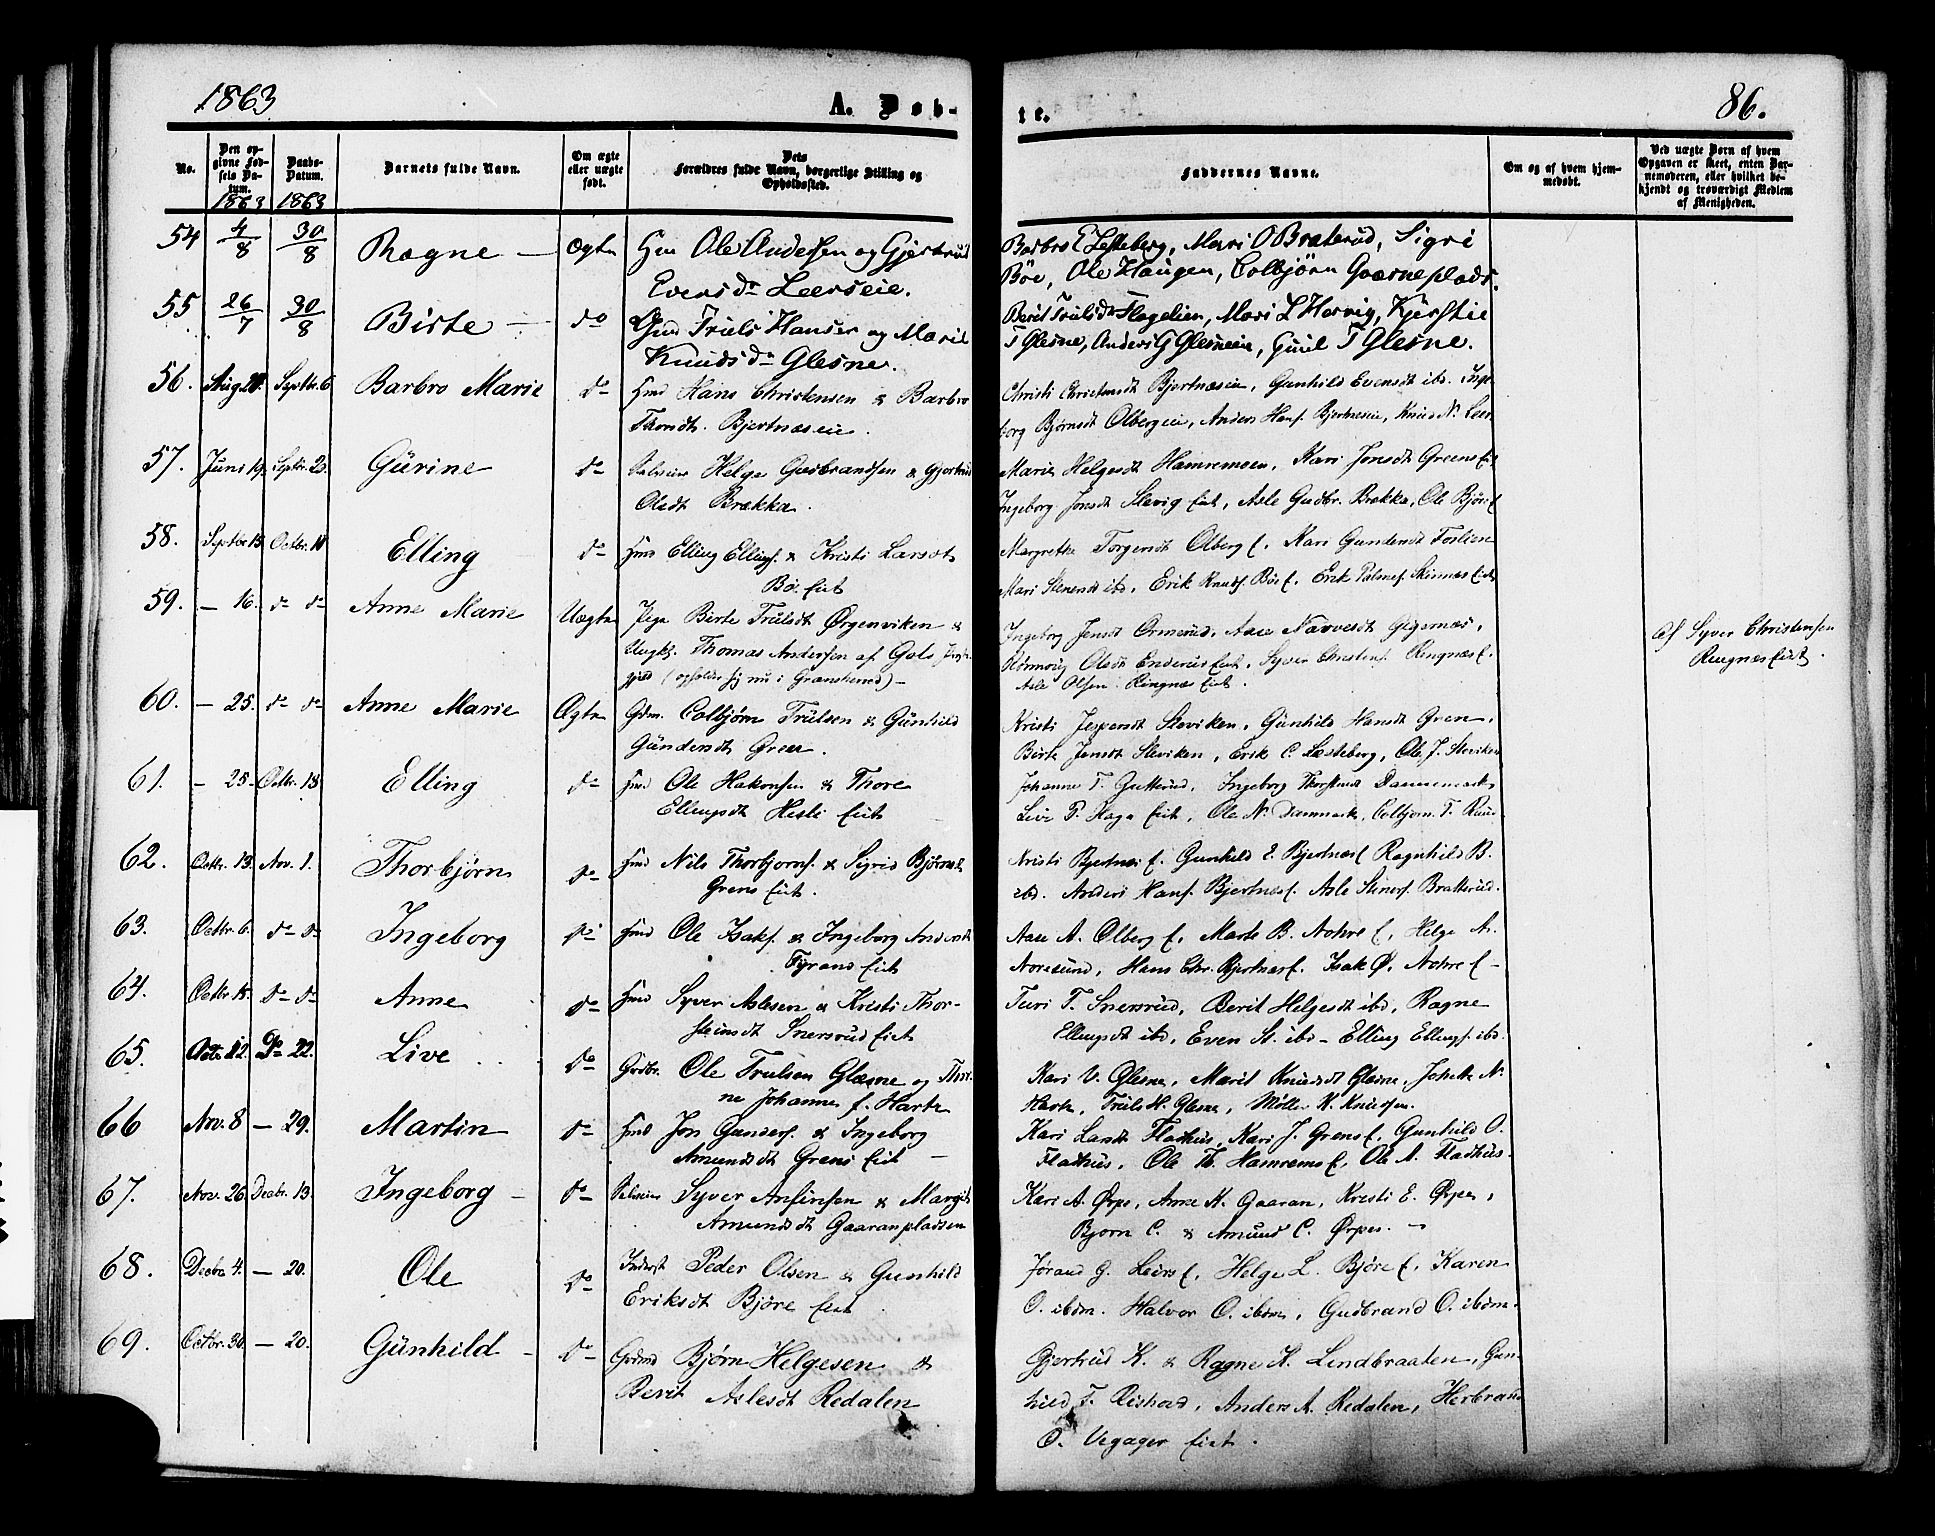 1863
A. Døb-
te.
86.
No.
Den op-
givne Fød-
sels Da-
tum.
1863
Daabs-
Datum.
1863
Barnets fulde Navn.
Om ægte
eller uægte
født.
Dets
Forældres fulde Navn, borgerlige Stilling og
Opholdssted.
Faddernes Navne.
Om og af hvem hjem-
medøbt.
Ved uægte Børn af hvem
Opgaven er skeet, enten Bar-
nemoderen, eller hvilket be-
kjendt og troværdigt Medlem
af Menigheden.
54 4/8 30/8 Ragne — Ægte Hm Ole Andersen og Gjertrud
Evensdr Leerseie.
Barbro E Lesteberg, Mari O Braterud, Sigri
Böe, Ole Haugen, Colbjörn Græsneplads.
55 26/7 30/8 Birte — do Gmd Truls Hansen og Marit
Knudsdr Glesne.
Berit Trulsdr Flagelien, Mari L Hervig, Kjersti
T Glesne, Anders G Glesneie, Guul T Glesne.
56. Aug 28. Septbr. 6 Barbro Marie do Hmd Hans Christensen & Barbro
Thorsdt. Bjertnæseie.
Christi Christensdt Bjertnæseie, Gunhild Evensdt ibd. Inge-
borg Bjørnsdt Olbergeie, Anders Hans. Bjertneseie, Knud N. Leer
57. Juni 19. Septbr. 20. Gürine do Selveier Helge Gudbrandsen & Gjertrud
Olsdt Brække.
Marie Helgesdt Hamremoen, Kari Jonsdt Greens Eie
Ingeborg Jonsdt Slevig Eiet, Asle Gudbr. Brække, Ole Björe E
58. Septbr 15 Octbr. 11 Elling do Hmd Elling Ellings. & Kristi Larsdt
Bö. Eiet
Margrethe Torgersdt Olberg E. Kari Gundersdt Foslien
Mari Steensdt ibd. Erik Knuds. Böe E. Erik Palmes. Skinnæs Eiet
59. — 16. do do Anne Marie Uægte Pige Birte Trulsdt Ørgenviken &
Ungk. Thomas Andersen af Gols Præste-
gjeld (opholder sig nu i Granskerud) —
Ingeborg Jensdt Ormerud, Aase Narvesdt Gigernæs,
Hörmoig Olsdt Enderud Eiet, Syver Christens. Ringnæs E.
Asle Olsen Ringnæs Eiet.
Af Syver Christensen
Ringnæs Eiet.
60. — 25. do do Anne Marie Ægte Gdm. Colbjørn Trülsen & Günhild
Gündersdt Gren.
Kristi Jespersdt Sleviken, Günhild Hansdt Gren,
Birte Jensdt Sleviken, Erik C. Lesteberg, Ole J. Sleviken
61. — 25. Octbr. 18 Elling do Hmd Ole Hakonsen & Thore
Ellingsdt Hesli Eiet
Johanne T. Gutterud, Ingeborg Thorstensd Danmark,
Live P. Haga Eiet, Ole N. Danmark, Colbjörn T. Ruud
62. Octbr. 13. Nov. 1. Thorbjørn do Hmd Nils Thorbjørns. & Sigrid Björnsdt
Grens Eiet.
Kristi Bjertnæs E. Gunhild E. Bjertnæs E Ragnhild B.
ibd. Anders Hans. Bjertnæs E. Asle Steners. Bratterud.
63. Octbr. 6. do do Ingeborg do Hmd Ole Isaks. & Ingeborg Andersdt
Tyrand Eiet
Aase A. Olberg E. Marte B. Nohre E, Helge A.
Noresund, Hans Chr. Bjertnæs E. Isak Ø. Nohre E —
64. Octbr 18. do do Anne do Hmd Syver Aslesen & Kristi Thor-
steinsdt Snersrud Eiet
Turi T. Snersrud, Berit Helgesdt ibd, Ragne
Ellingsdt ibd, Even St. ibd — Elling Ellings. ibd.
65. Octbr. 12. Do 22. Live do Grdbr. Ole Trulsen Glæsne og Thor-
ne Johannes f. Harte
Kari V. Glesne, Marit Knudsdt Glesne, Johette N.
Harte, Truls H. Glesne, Møller K. Knudsen.
66 Nov. 8 — 29. Martin do Hmd Jon Gunders. & Ingeborg
Amundsdt Grens Eiet —
Kari Larsdt Fladhus, Kari J. Grens E, Gunhild O.
Fladhus, Ole Th. Hamrems E, Ole A. Fladhus.
67. Nov. 26. Decbr. 13. Ingeborg — do Selveier Syver Ansinsen & Margit
Amundsdt Gaaranpladsen
Kari A. Ørpe, Anne K. Gaaran, Kristi E. Ørpen,
Bjørn C. & Amund C. Ørpen. —
68. Decbr 4. — 20. Ole do Inderst Peder Olsen & Gunhild
Eriksdt Björe Eiet.
Jörand G. Leirs E, Helge L. Björe E. Karen
O. ibdm. Halvor O. ibdm, Gudbrand O. ibdm.
69. Octbr. 30. — 20. Günhild — do Grdmd Bjørn Helgesen &
Berit Aslesdt Redalen
Gjertrud K. & Ragne K. Lindbraaten, Gun-
hild T. Rishovd, Anders A. Redalen, Herbrand
O. Vegager Eiet.